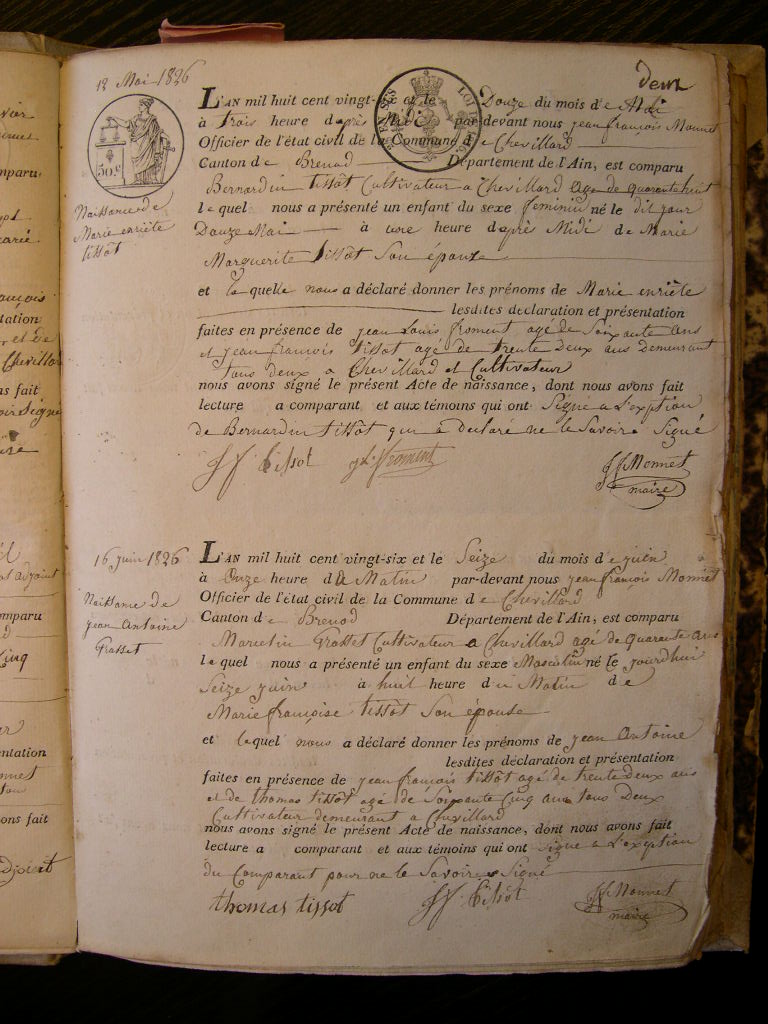 deux
12 Mai 1826
L'AN mil huit cent vingt-six et le Douze du mois de Mai
à trois heure daprè Midi par-devant nous jean françois Monnet
Officier de l'état civil de la Commune de Chevillard
Canton de Brenod Département de l'Ain, est comparu
Bernardin tissot Cultivateur a Chevillard age de quarante huit
lequel nous a présenté un enfant du sexe feminin né le dit jour
Douze Mai à une heure daprè Midi de Marie
Marguerite tissot Son épouse
et laquelle nous a déclaré donner les prénoms de Marie enriète
lesdites déclaration et présentation
faites en présence de jean Louis froment agé de Soixante ans
et jean francois tissot agé de trente Deux ans demeurant
tous deux a Chevillard et Cultivateur
nous avons signé le présent Acte de naissance, dont nous avons fait
lecture a comparant et aux témoins qui ont Signé a L'exption
de Bernardin tissot qui a declaré ne le Savoire Signé
JF tissot jL froment JfMonnet
maire
50.c
Naissance de
Marie enriète
tissot
16 juin 1826
L'AN mil huit cent vingt-six et le Seize du mois de juin
à Onze heure du Matin par-devant nous jean françois Monnet
Officier de l'état civil de la Commune de Chevillard
Canton de Brenod Département de l'Ain, est comparu
Grosset Cultivateur a Chevillard agé de quarante ans
lequel nous a présenté un enfant du sexe Masculin né le jourdhui
Seize juin à huit heure du Matin de
Marie françoise tissot Son épouse
et lequel nous a déclaré donner les prénoms de jean Antoine
lesdites déclaration et présentation
faites en présence de jean françois tissot agé de trente deux ans
et de thomas tissot agé de Soixante Cinq ans tous Deux
Cultivateur demeurant a Chevillard
nous avons signé le présent Acte de naissance, dont nous avons fait
lecture a comparant et aux témoins qui ont signé a L'exption
du Comparant pour ne le Savoire Signé
thomas tissot JF tissot JfMonnet
maire
Naissance de
jean Antoine
Grosset